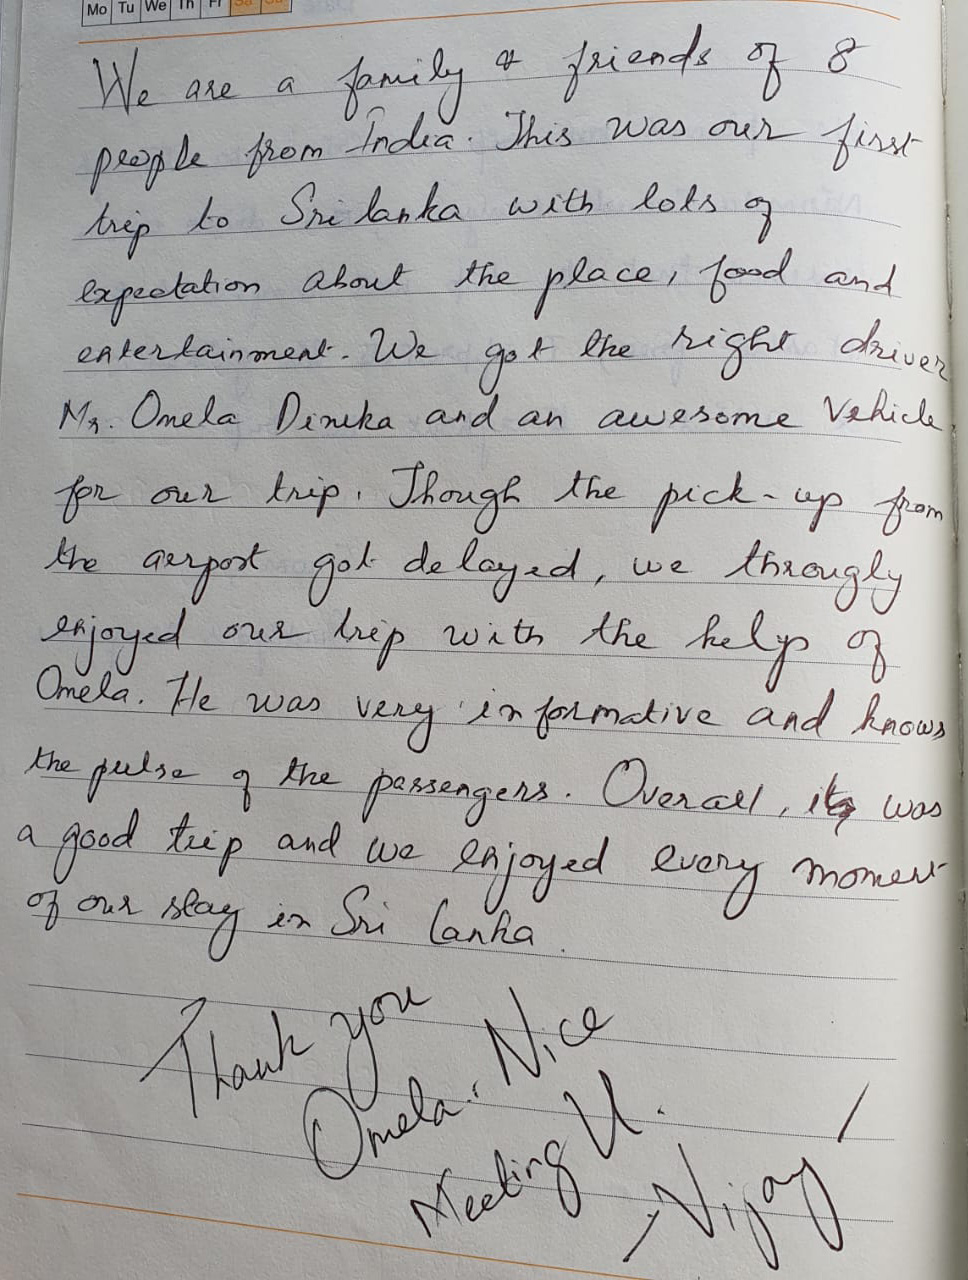 Mo Tu We Th Fr Sa Su
We are a family & friends of 8
people from India. This was our first
trip to Sri lanka with lots of
expectation about the place, food and
entertainment. We got the right driver
Mr. Omela Dineka and an awesome Vehicle
for our trip. Though the pick-up from
the aerport got delayed, we througly
enjoyed our trip with the help of
Omela. He was very informative and knows
the pulse of the passengers. Overall, it was
a good trip and we enjoyed every moment
of our stay in Sri Lanka.
Thank you
Omela. Nice
Meeting U.
Vijay